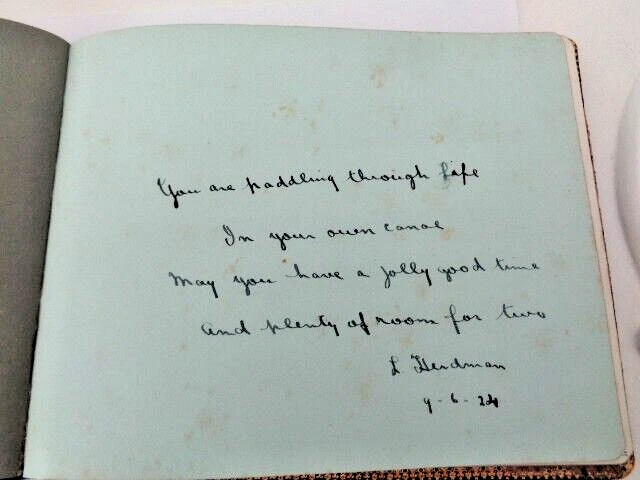 You are paddling through life
In your own canoe
May you have a jolly good time
and plenty of room for two
L Herdman
9-6-24